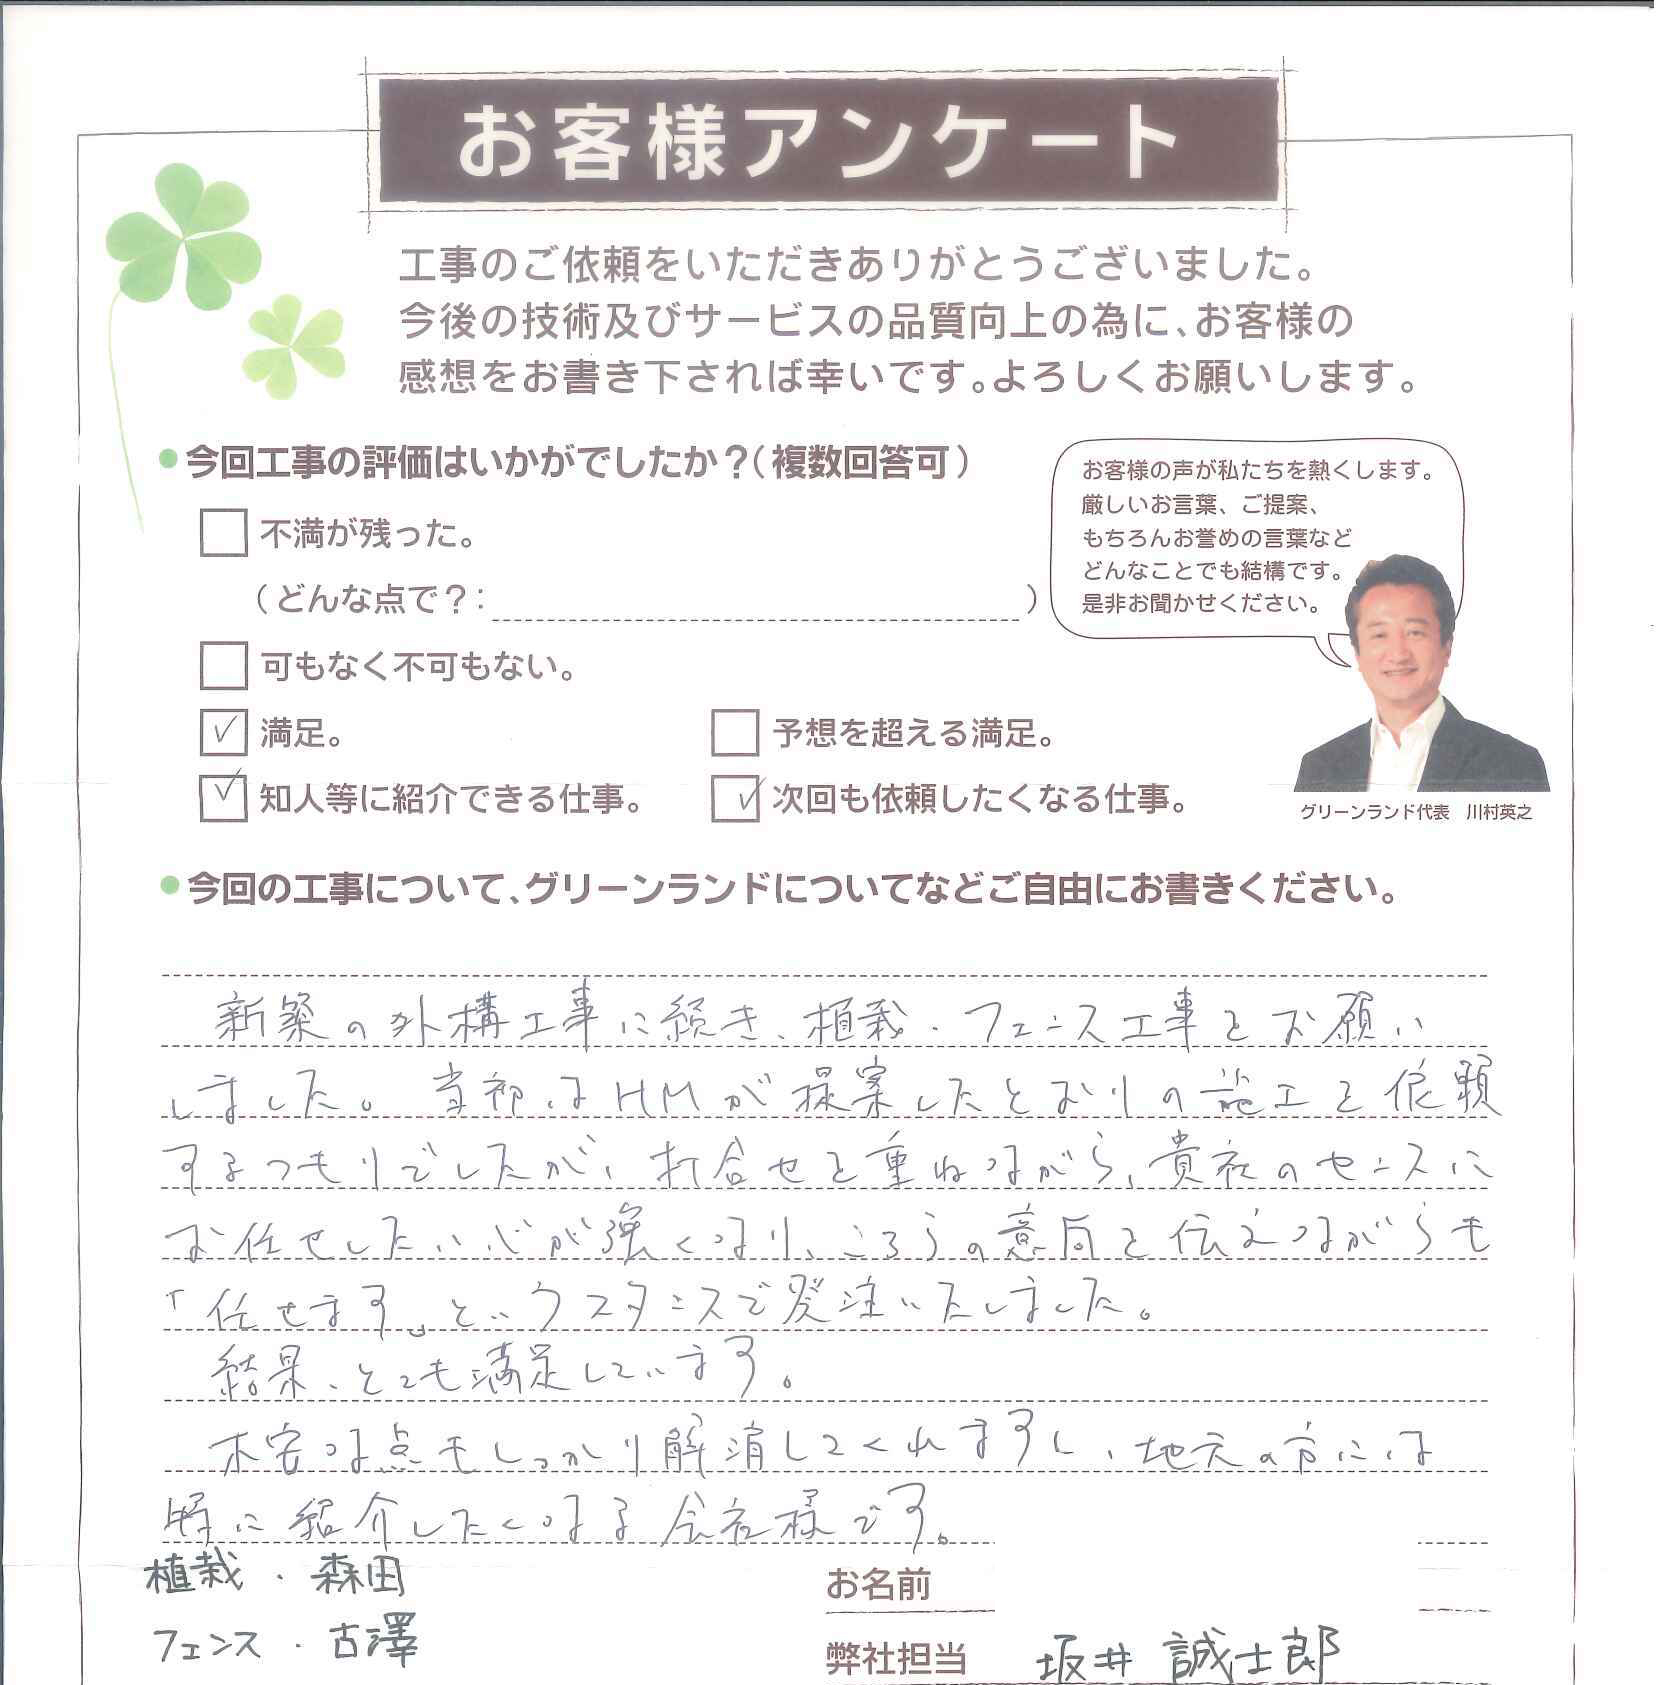 お客様アンケート
工事のご依頼をいただきありがとうございました。
今後の技術及びサービスの品質向上の為に、お客様の
感想をお書き下されば幸いです。よろしくお願いします。
今回工事の評価はいかがでしたか？（複数回答可）
不満が残った。
（どんな点で？：　）
可もなく不可もない。
満足。
予想を超える満足。
知人等に紹介できる仕事。
次回も依頼したくなる仕事。
お客様の声が私たちを熱くします。
厳しいお言葉、ご提案、
もちろんお誉めの言葉など
どんなことでも結構です。
是非お聞かせください。
グリーンランド代表　川村英之
今回の工事について、グリーンランドについてなどご自由にお書きください。
新築の外構工事に続き、植栽・フェンス工事をお願い
しました。当初はHMが提案したとおりの施工を依頼
するつもりでしたが、打合せを重ねながら、貴社のセンスに
お任せしたい心が強くなり、こちらの意向を伝えながらも
「任せます」というスタンスで発注いたしました。
結果、とても満足しています。
不安な点もしっかり解消してくれますし、地元の方には
特に紹介したくなる会社様です。
植栽・森田
フェンス・古澤
お名前
弊社担当　坂井 誠士郎